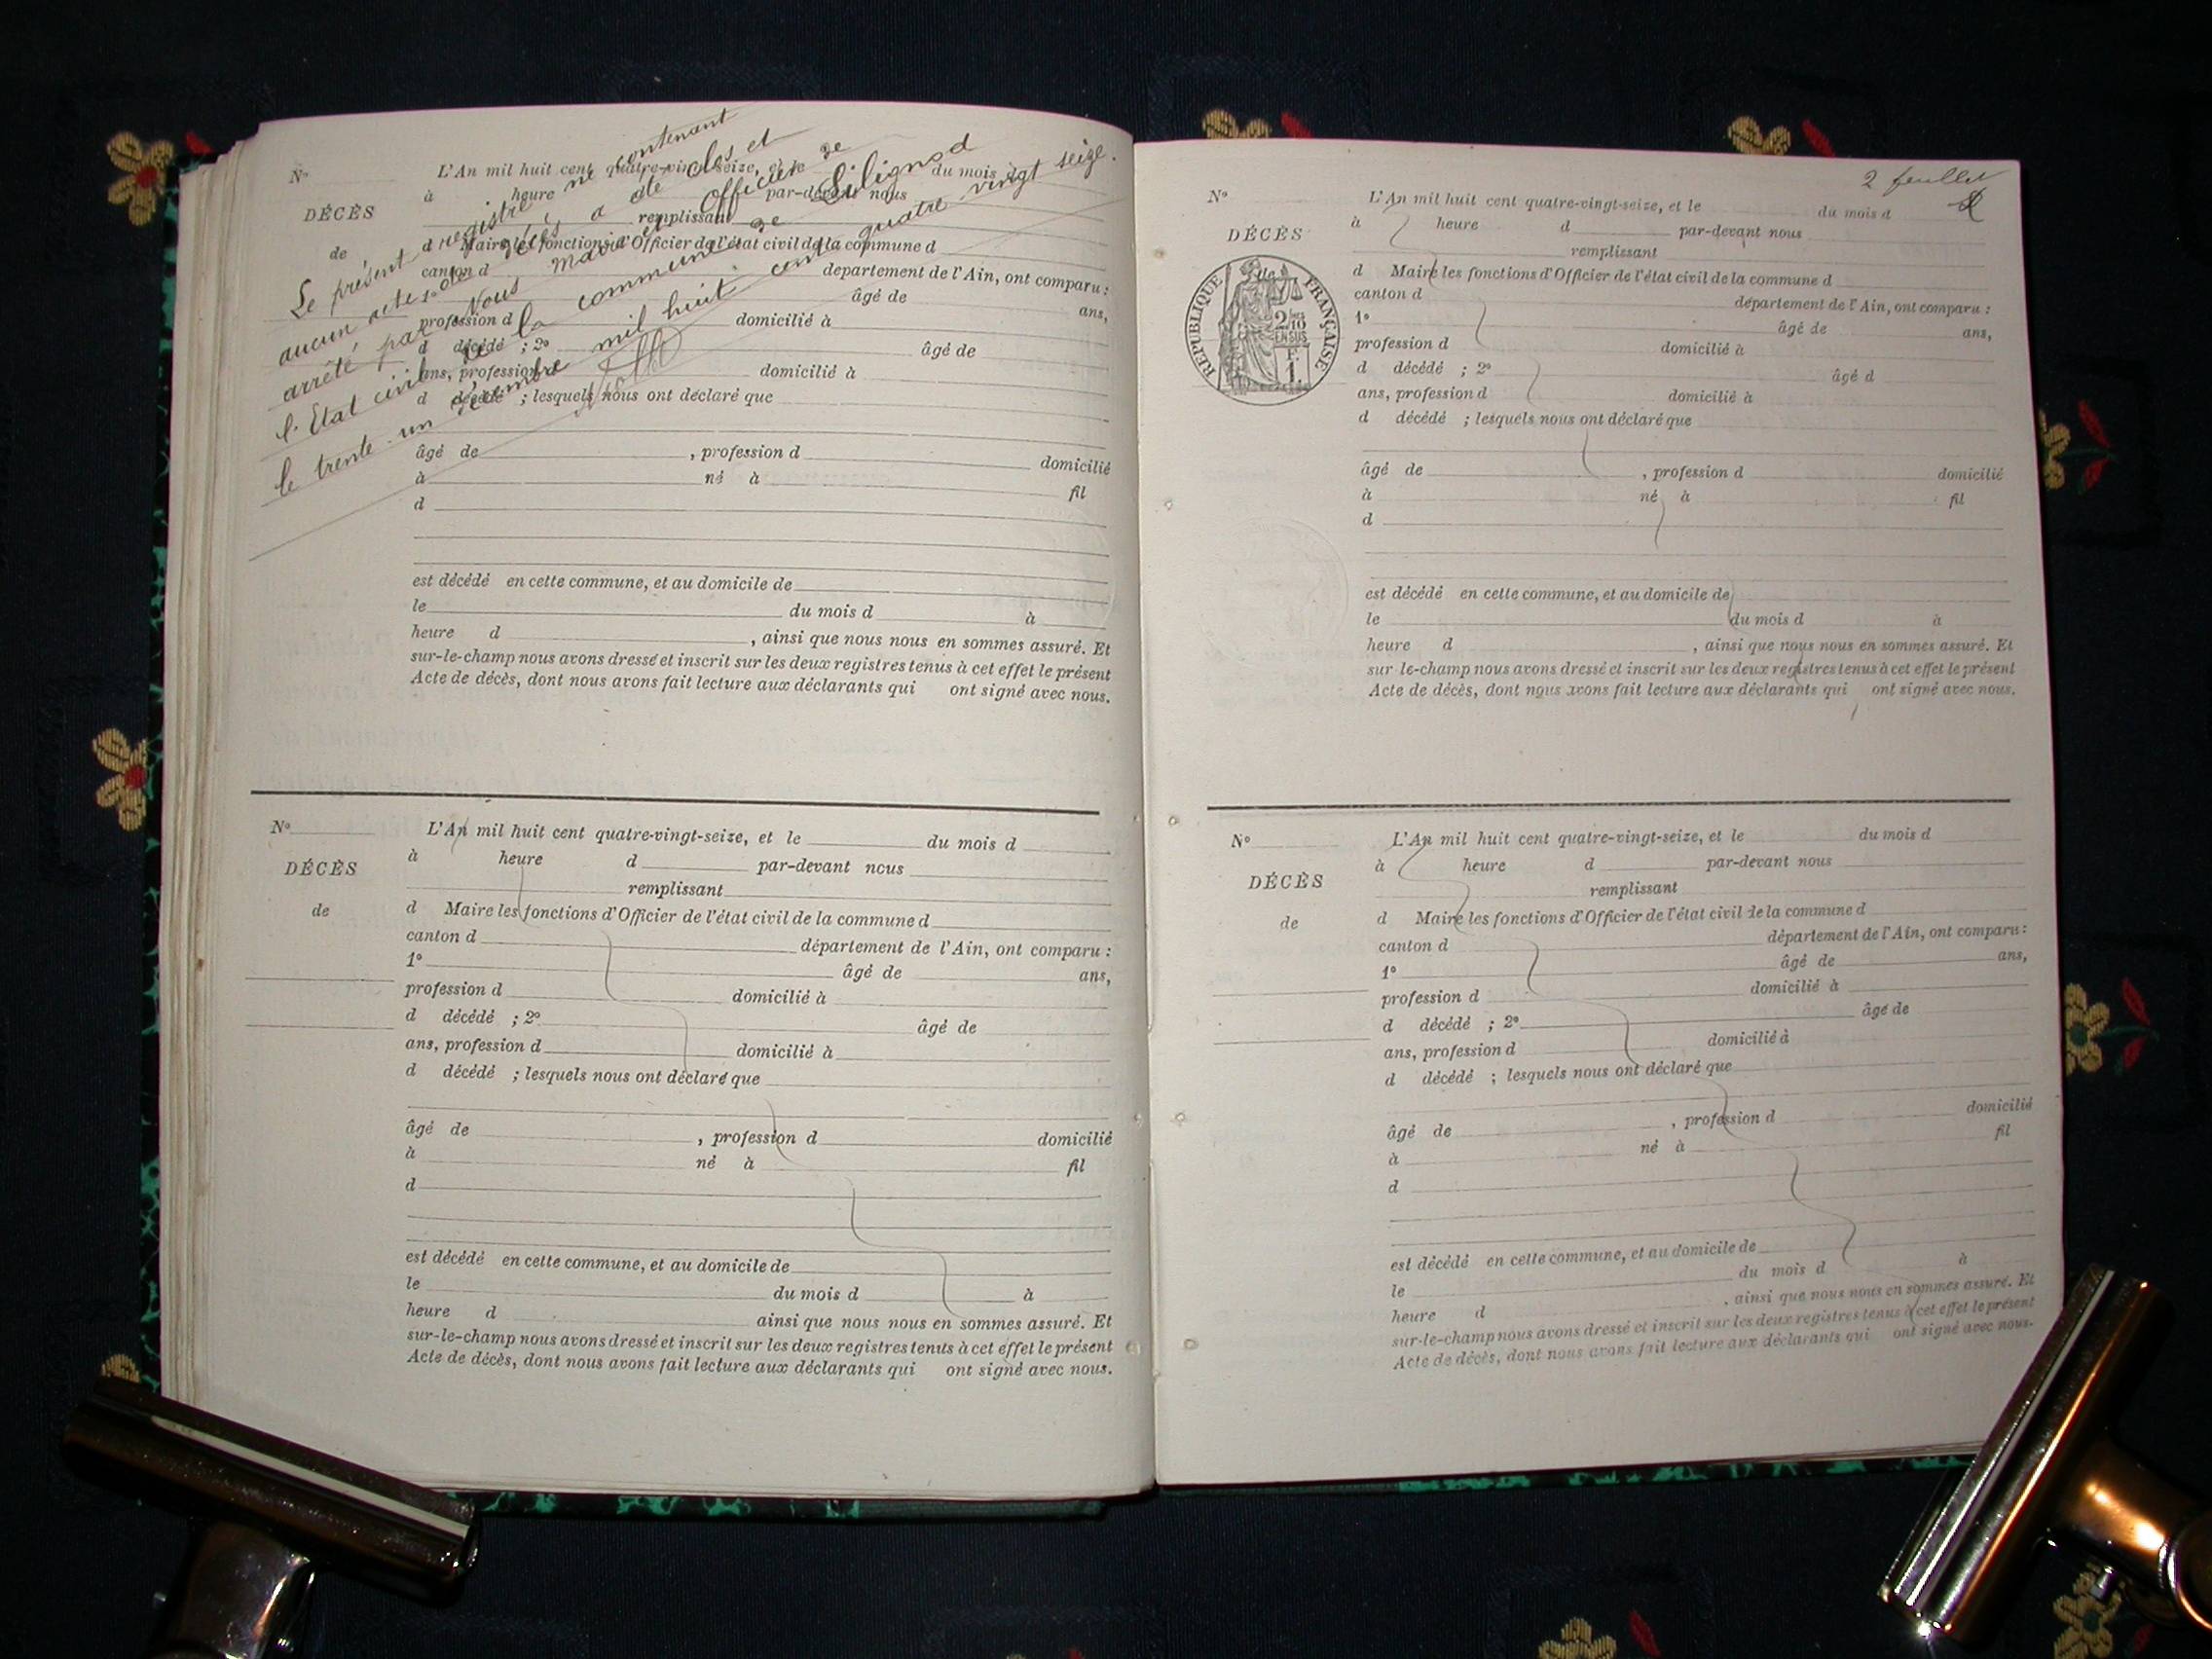 Le présent registre ne contenant
aucun acte de décès, a été clos et
arrêté, par Nous Maire et Officier de
l'Etat civil de la commune de Lilignod
le trente un décembre mil huit cent quatre vingt seize.
Nº
DÉCÈS
de
L'An mil huit cent quatre-vingt-seize, et le du mois d
à heure d par-devant nous
remplissant
d Maire les fonctions d'Officier de l'état civil de la commune d
canton d département de l'Ain, ont comparu :
1º âgé de ans,
profession d domicilié à
d décédé ; 2º âgé de
ans, profession d domicilié à
d décédé ; lesquels nous ont déclaré que
âgé de , profession d domicilié
à né à fil
d
est décédé en cette commune, et au domicile de
le du mois d à
heure d , ainsi que nous nous en sommes assuré. Et
sur-le-champ nous avons dressé et inscrit sur les deux registres tenus à cet effet le présent
Acte de décès, dont nous avons fait lecture aux déclarants qui ont signé avec nous.
Nº
DÉCÈS
de
L'An mil huit cent quatre-vingt-seize, et le du mois d
à heure d par-devant nous
remplissant
d Maire les fonctions d'Officier de l'état civil de la commune d
canton d département de l'Ain, ont comparu :
1º âgé de ans,
profession d domicilié à
d décédé ; 2º âgé de
ans, profession d domicilié à
d décédé ; lesquels nous ont déclaré que
âgé de , profession d domicilié
à né à fil
d
est décédé en cette commune, et au domicile de
le du mois d à
heure d ainsi que nous nous en sommes assuré. Et
sur-le-champ nous avons dressé et inscrit sur les deux registres tenus à cet effet le présent
Acte de décès, dont nous avons fait lecture aux déclarants qui ont signé avec nous.
2 feuillet
Nº
DÉCÈS
de
RÉPUBLIQUE FRANÇAISE
2/10
EN SUS
1 F.
L'An mil huit cent quatre-vingt-seize, et le du mois d
à heure d par-devant nous
remplissant
d Maire les fonctions d'Officier de l'état civil de la commune d
canton d département de l'Ain, ont comparu :
1º âgé de ans,
profession d domicilié à
d décédé ; 2º âgé d
ans, profession d domicilié à
d décédé ; lesquels nous ont déclaré que
âgé de , profession d domicilié
à né à fil
d
est décédé en cette commune, et au domicile de
le du mois d à
heure d , ainsi que nous nous en sommes assuré. Et
sur-le-champ nous avons dressé et inscrit sur les deux registres tenus à cet effet le présent
Acte de décès, dont nous avons fait lecture aux déclarants qui ont signé avec nous.
Nº
DÉCÈS
de
L'An mil huit cent quatre-vingt-seize, et le du mois d
à heure d par-devant nous
remplissant
d Maire les fonctions d'Officier de l'état civil de la commune d
canton d département de l'Ain, ont comparu :
1º âgé de ans,
profession d domicilié à
d décédé ; 2º âgé de
ans, profession d domicilié à
d décédé ; lesquels nous ont déclaré que
âgé de , profession d domicilié
à né à fil
d
est décédé en cette commune, et au domicile de
le du mois d à
heure d , ainsi que nous nous en sommes assuré. Et
sur-le-champ nous avons dressé et inscrit sur les deux registres tenus à cet effet le présent
Acte de décès, dont nous avons fait lecture aux déclarants qui ont signé avec nous.